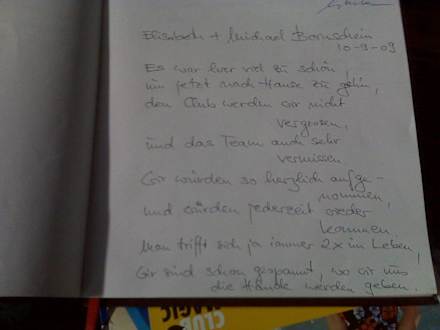 Elisabeth + Michael Bornschein
10-9-09
Es war hier viel zu schön,
um jetzt nach Hause zu gehn,
den Club werden wir nicht
vergessen,
und das Team auch sehr
vermissen
Wir wurden so herzlich aufge-
nommen,
und würden jederzeit wieder
kommen
Man trifft sich ja immer 2x im Leben,
Wir sind schon gespannt, wo wir uns
die Hände werden geben.
CLUB
MAGIC